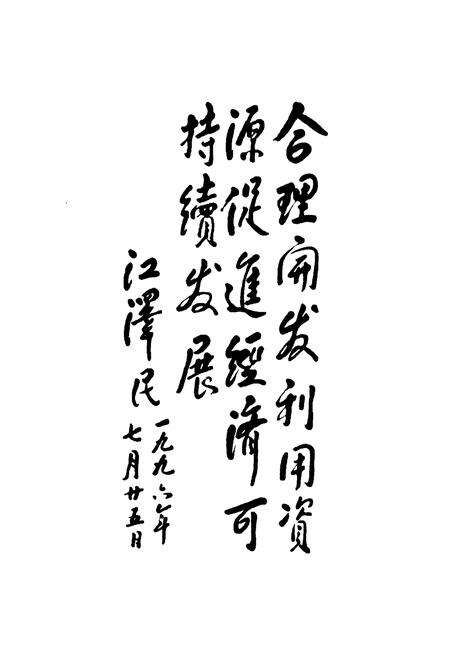 合理开发利用资
源促進經济可
持續发展
江澤民
一九九六年
七月廿五日